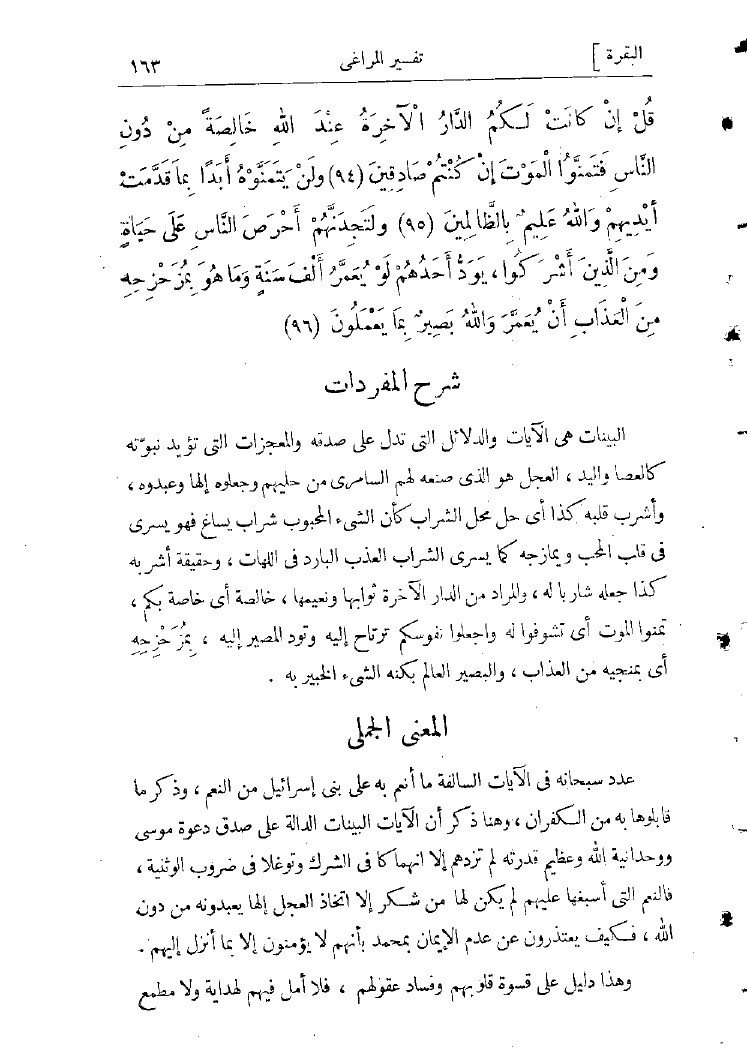 البقرة ]
تفسير المراغى
١٦٣
قُلْ إِنْ كَانَتْ لَكُمُ الدَّارُ الْآخِرَةُ عِنْدَ اللهِ خَالِصَةً مِنْ دُونِ
النَّاسِ فَتَمَنَّوُا الْمَوْتَ إِنْ كُنْتُمْ صَادِقِينَ (٩٤) ولَنْ يَتَمَنَّوْهُ أَبَدًا بِمَا قَدَّمَتْ
أَيْدِيهِمْ وَاللهُ عَلِيمٌ بِالظَّالِمِينَ (٩٥) ولَتَجِدَنَّهُمْ أَحْرَصَ النَّاسِ عَلَى حَيَاةٍ
وَمِنَ الَّذِينَ أَشْرَكُوا، يَوَدُّ أَحَدُهُمْ لَوْ يُعَمَّرُ أَلْفَ سَنَةٍ وَمَا هُوَ بِمُزَحْزِحِهِ
مِنَ الْعَذَابِ أَنْ يُعَمَّرَ وَاللهُ بَصِيرٌ بِمَا يَعْمَلُونَ (٩٦)
شرح المفردات
البينات هى الآيات والدلائل التى تدل على صدقه والمعجزات التى تؤيد نبوّته
كالعصا واليد ، العجل هو الذى صنعه لهم السامرى من حليهم وجعلوه إلها وعبدوه ،
وأشرب قلبه كذا أى حل محل الشراب كأن الشىء المحبوب شراب يساغ فهو يسرى
فى قلب المحب ويمازجه كما يسرى الشراب العذب البارد فى اللهات ، وحقيقة أشربه
كذا جعله شاربا له ، والمراد من الدار الآخرة ثوابها ونعيمها ، خالصة أى خاصة بكم ،
تمنوا الموت أى تشوفوا له واجعلوا نفوسكم ترتاح إليه وتود المصير إليه ، بِمُزَحْزِحِهِ
أى بمنجيه من العذاب ، والبصير العالم بكنه الشىء الخبير به .
المعنى الجملى
عدد سبحانه فى الآيات السالفة ما أنعم به على بنى إسرائيل من النعم ، وذكر ما
قابلوها به من الكفران ، وهنا ذكر أن الآيات البينات الدالة على صدق دعوة موسى
ووحدانية الله وعظيم قدرته لم تزدهم إلا انهما كا فى الشرك وتوغلا فى ضروب الوثنية ،
فالنعم التى أسبغها عليهم لم يكن لها من شكر إلا اتخاذ العجل إلها يعبدونه من دون
الله ، فكيف يعتذرون عن عدم الإيمان بمحمد بأنهم لا يؤمنون إلا بما أنزل إليهم .
وهذا دليل على قسوة قلوبهم وفساد عقولهم ، فلا أمل فيهم لهداية ولا مطمع